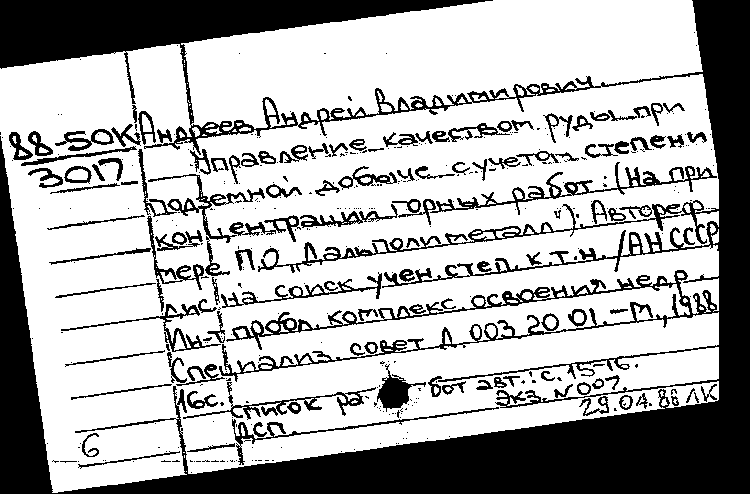 88-50К Андреев, Андрей Владимирович.
3017 Управление качеством руды при
подземной добыче с учетом степени
концентрации горных работ: (На при
мере П.О „Дальполиметалл"): Автореф.
дис на соиск учен. степ. к.т.н. /АН СССР,
Ин-т пробл. комплекс. освоения недр.
Специализ. совет Д. 003 20 01. – М., 1988
16с. Список работ авт.: с. 15-16.
ДСП. Экз. N 007.
6 29.04.88 ЛК